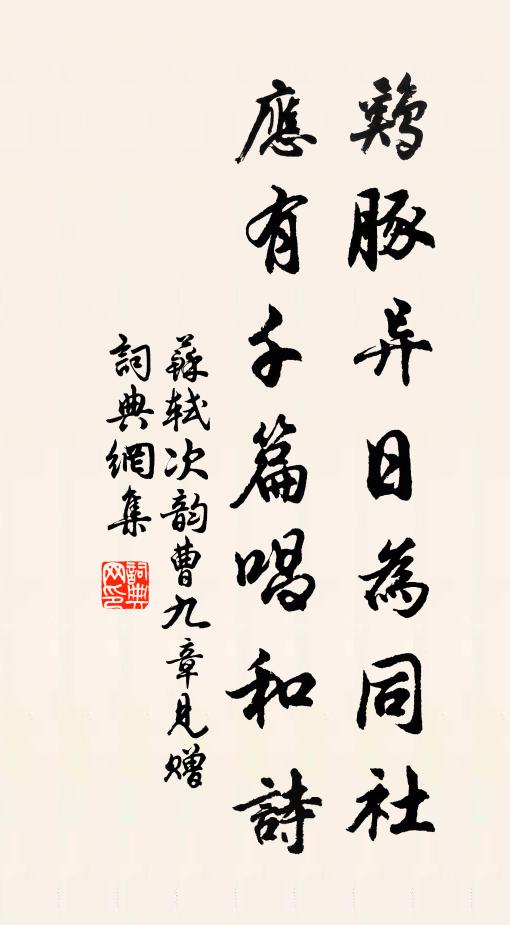 鷄豚异日為同社
應有千篇唱和詩
蘇軾次韵曹九章見贈
詞典網集
詞典网印